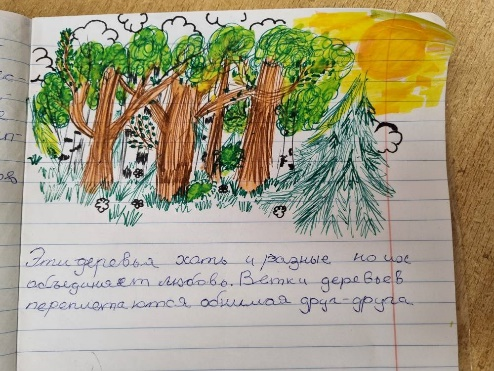 Эти деревья хоть и разные но их
объединяет любовь. Ветки деревьев
переплетаются обнимая друг-друга